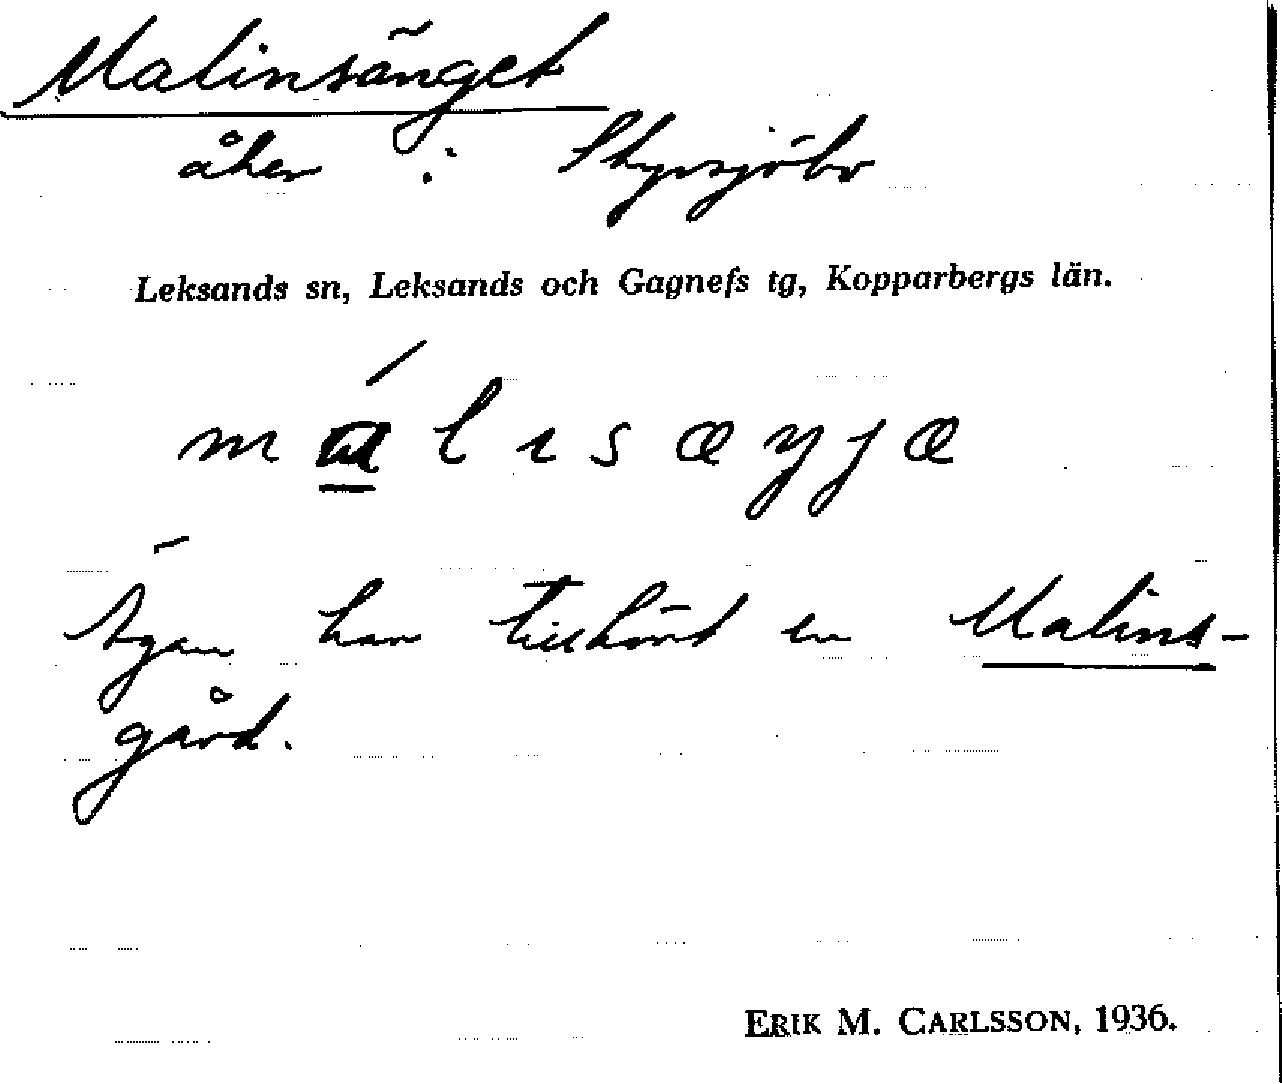 Malinsänget
åker i Styrsjöbo
Leksands sn, Leksands och Gagnefs tg, Kopparbergs län.
Ägan har tillhört en Malins-
gård.
ERIK M. CARLSSON, 1936.